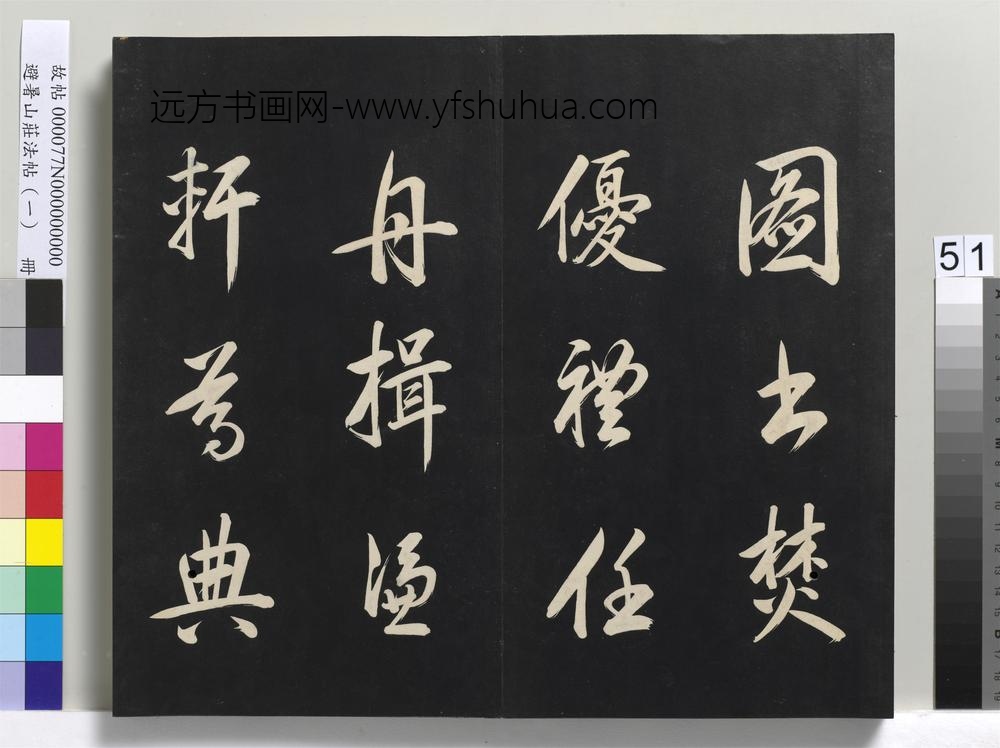 故帖 000077N000000000
避暑山莊法帖（一） 冊
远方书画网-www.yfshuhua.com
51
焚
優禮任
舟楫
軒典